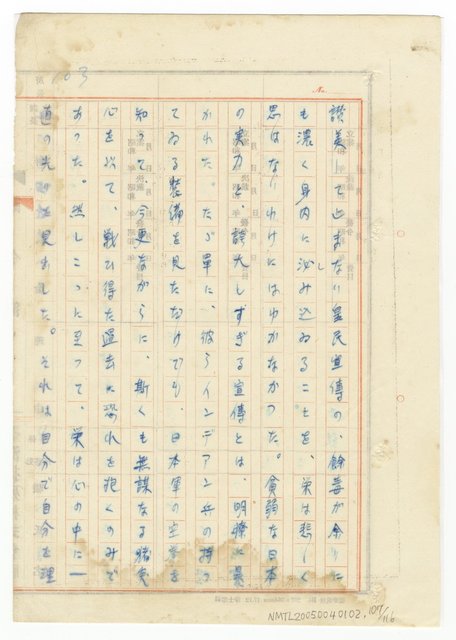 讃美して止まない皇民宣傳の、餘毒が余りに
も濃く身内に泌み込ゐることを、栄は悲しく
思はないわけにはゆかなかつた。貧弱な日本
の実力と、誇大しすぎる宣傳とは、明瞭に暴
かれた。たゞ単に、彼らインデアン兵の持つ
てゐる装備を見たゞけでも、日本軍の空
知つて今更ながらに、斯くも無謀なる
心を以て、戦ひ得た過去に恐れを抱くのみで
あつた。然しこゝに至つて、栄は心の中に一
道の光を見出した。それは自分で自分を理
103
No.
NMTL20050040102, 104/116